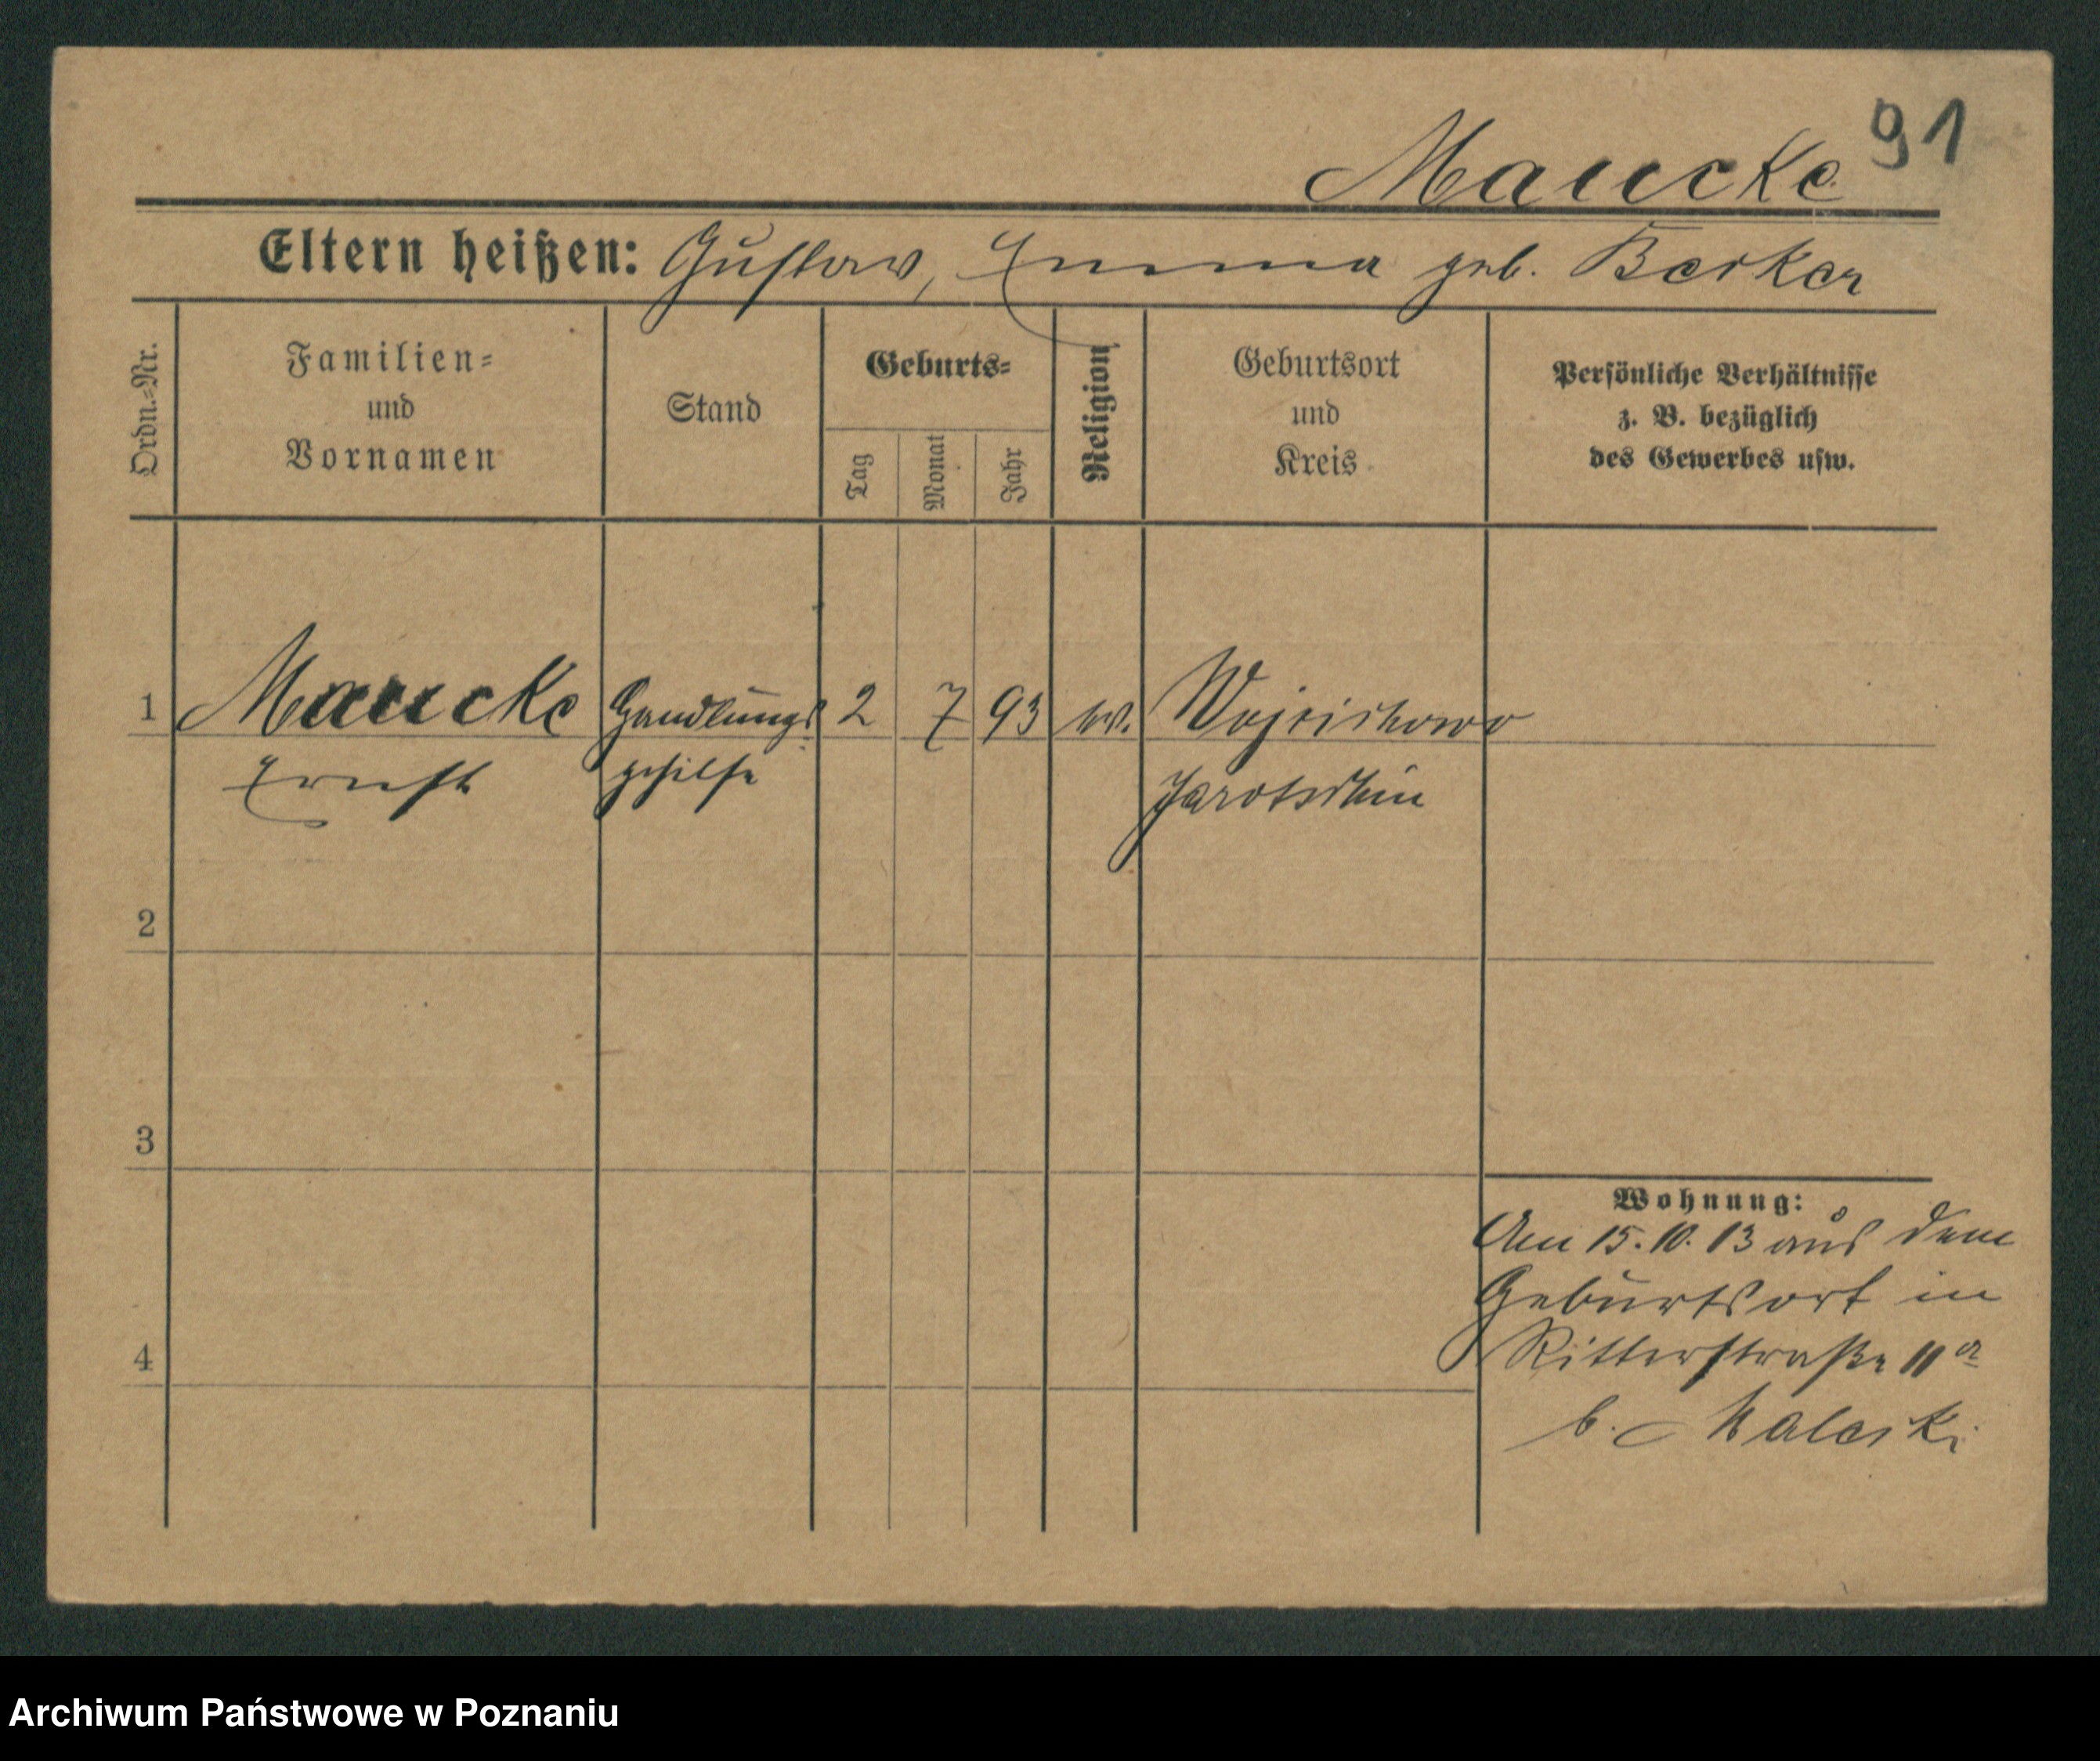 91
Maucke
Eltern heißen: Gustav, Emma geb. Becker
Ordn.=Nr.
Familien=
und
Vornamen
Stand
Geburts=
Tag
Monat
Jahr
Religion
Geburtsort
und
Kreis
Persönliche Verhältnisse
z. B. bezüglich
des Gewerbes usw.
1 Maucke Handlungs= 2 7 93 ev. Wojciechowo
Ernst gehilfe Jarotschin
2
3
4
Wohnung:
Am 15. 10. 13 aus dem
Geburtsort in
Ritterstraße 11a
b. Maleski
Archiwum Państwowe w Poznaniu